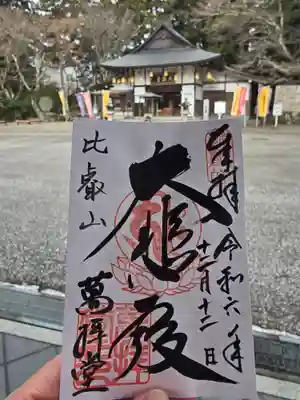 奉拝
令和六年
十二月十二日
大悲殿
比叡山
萬拝堂